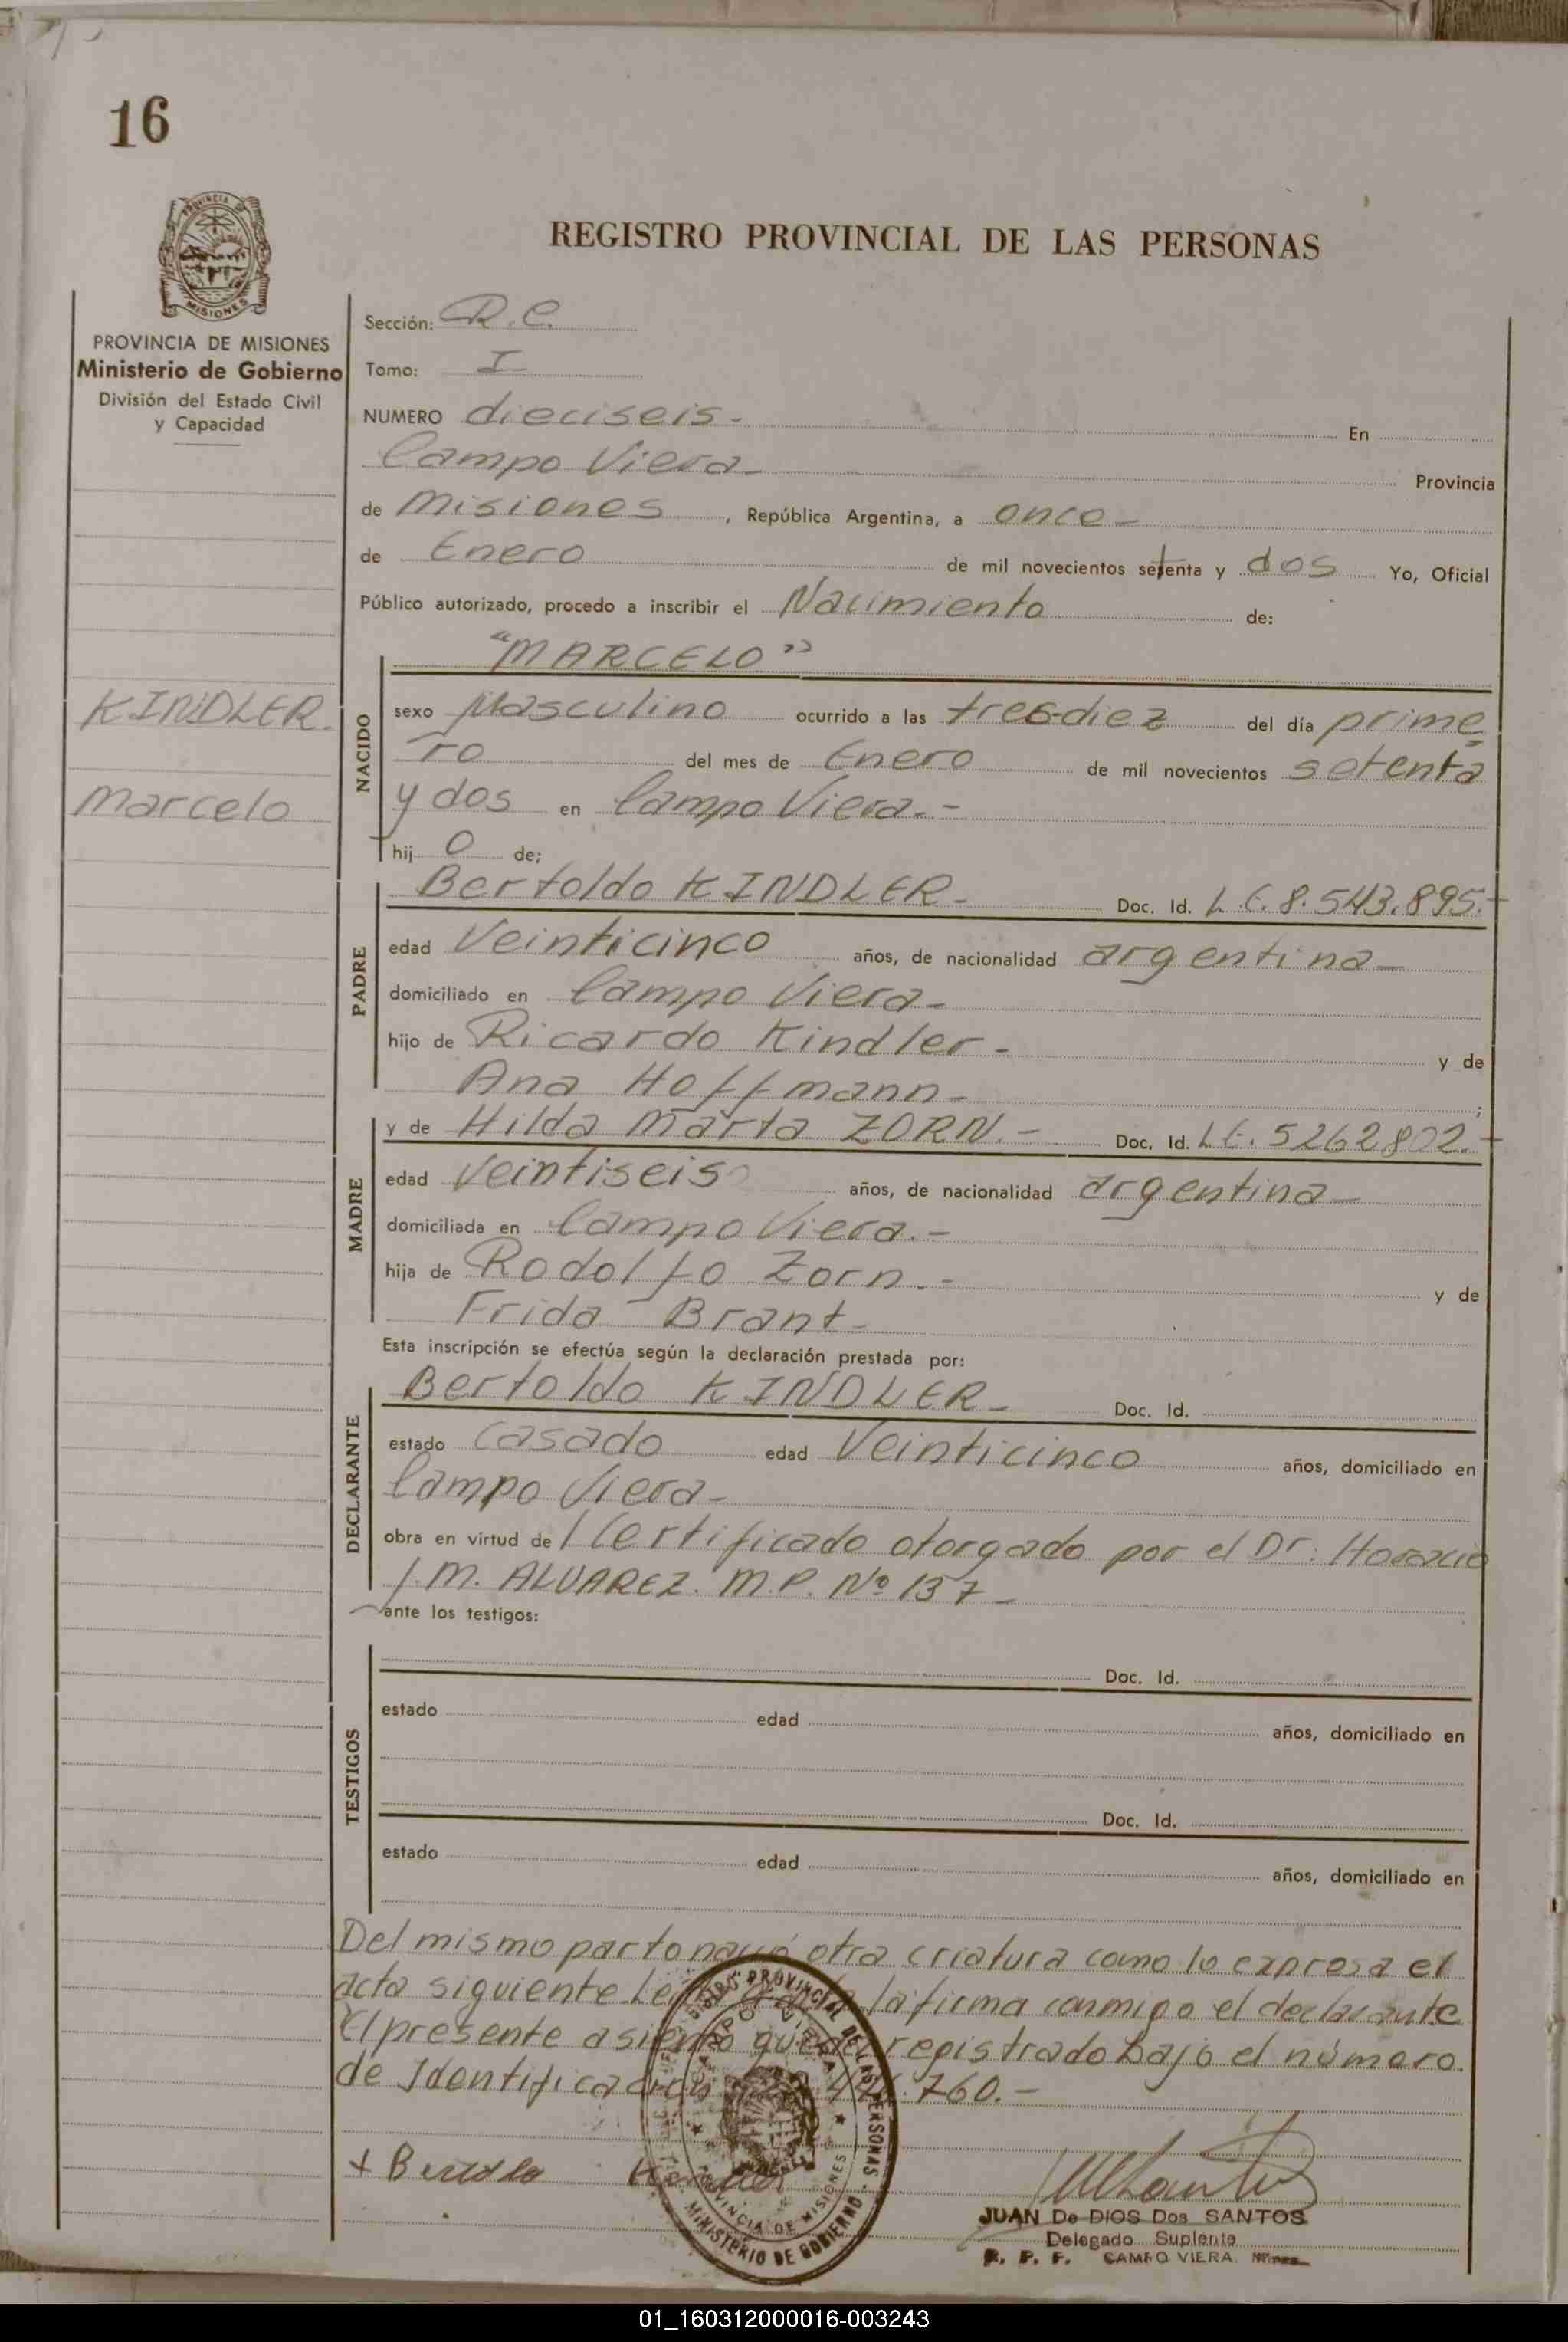 16
REGISTRO PROVINCIAL DE LAS PERSONAS
PROVINCIA DE MISIONES
Ministerio de Gobierno
División del Estado Civil
y Capacidad
KINDLER.
Marcelo
Sección: R.C.
Tomo: I
NUMERO dieciseis. En
Campo Viera Provincia
de Misiones, República Argentina, a once
de Enero de mil novecientos setenta y dos Yo, Oficial
Público autorizado, procedo a inscribir el Nacimiento de:
"MARCELO"
NACIDO
sexo Masculino ocurrido a las tres diez del día prime
ro del mes de Enero de mil novecientos setenta
y dos en Campo Viera.-
hij o de;
PADRE
Bertoldo KINDLER- Doc. Id. L.E. 8.543.895.-
edad Veinticinco años, de nacionalidad argentina-
domiciliado en Campo Viera-
hijo de Ricardo Kindler- y de
Ana Hoffmann- ;
MADRE
y de Hilda Marta ZORN.- Doc. Id. L.E. 5262802.-
edad Veintiseis años, de nacionalidad argentina-
domiciliada en Campo Viera.-
hija de Rodolfo Zorn.- y de
Frida Brant-
Esta inscripción se efectúa según la declaración prestada por:
DECLARANTE
Bertoldo KINDLER- Doc. Id.
estado Casado edad Veinticinco años, domiciliado en
Campo Viera-
obra en virtud de 1 Certificado otorgado por el Dr. Horacio
J.M. ALVAREZ. M.P. Nº 137-
ante los testigos:
TESTIGOS
Doc. Id.
estado edad años, domiciliado en
Doc. Id.
estado edad años, domiciliado en
Del mismo parto nació otra criatura como lo expresa el
acta siguiente la firma conmigo el declarante
El presente asiento queda registrado bajo el número
de Identificación 760.-
+ Bertoldo Kindler
JUAN De DIOS Dos SANTOS
Delegado Suplente
R. P. P. CAMPO VIERA Mnes
REGISTRO PROVINCIAL DE LAS PERSONAS
CAMPO VIERA
PROVINCIA DE MISIONES
MINISTERIO DE GOBIERNO
01_160312000016-003243